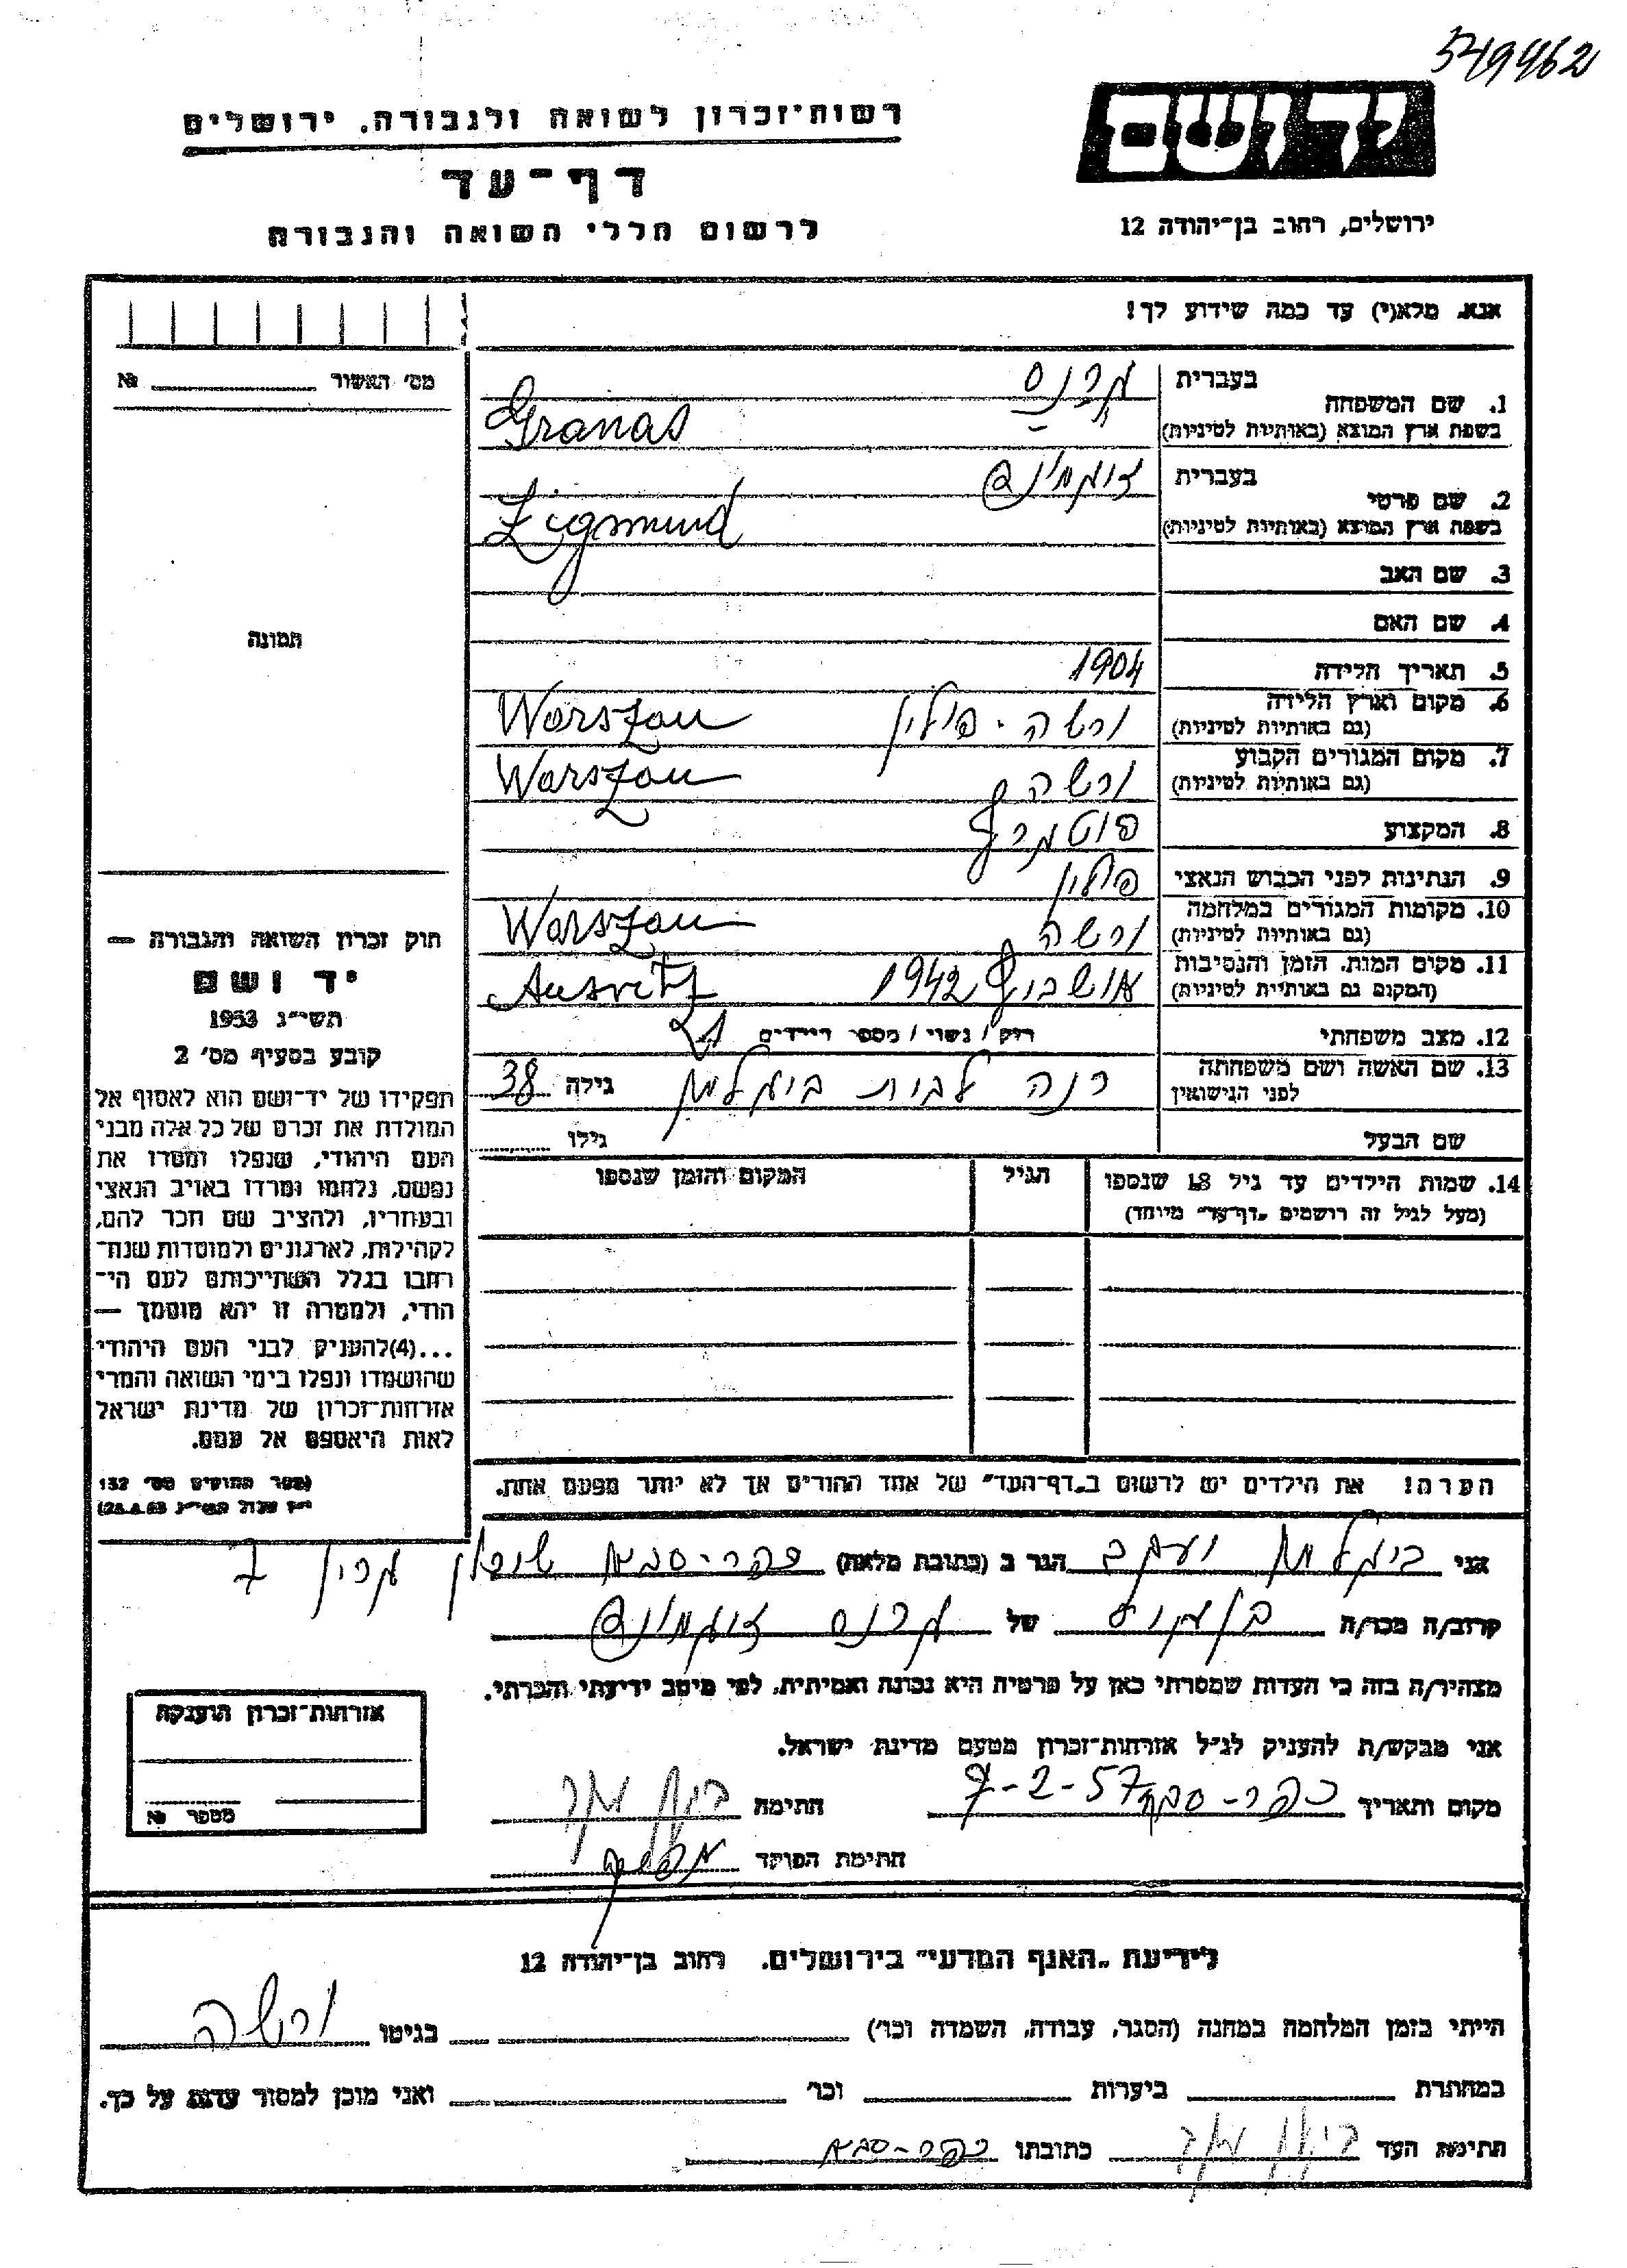 549462
רשות־זכרון לשואה ולגבורה, ירושלים
ידושם
דף־עד
לרשום חללי השואה והגבורה
ירושלים, רחוב בן־יהודה 12
אנא, מלא(י) עד כמה שידוע לך!
מס׳ האשור № 
1. שם המשפחה
בעברית גרנס
בשפת ארץ המוצא (באותיות לטיניות) Granas
2. שם פרטי
בעברית זיגמונד
בשפת ארץ המוצא (באותיות לטיניות) Zigmund
3. שם האב
4. שם האם
תמונה
5. תאריך הלידה 1904
6. מקום וארץ הלידה
(גם באותיות לטיניות) ורשה - פולין Warszau
7. מקום המגורים הקבוע
(גם באותיות לטיניות) ורשה Warszau
8. המקצוע
9. הנתינות לפני הכבוש הנאצי פולין
10. מקומות המגורים במלחמה
(גם באותיות לטיניות) ורשה Warszau
11. מקום המות, הזמן והנסיבות
(המקום גם באותיות לטיניות) 1942 Ausvitz
12. מצב משפחתי רווק / נשוי / מספר הילדים
13. שם האשה ושם משפחתה
לפני הנישואין רנה לבית ביגלמן גילה 38
שם הבעל גילו
14. שמות הילדים עד גיל 18 שנספו
(מעל לגיל זה רושמים „דף־עד” מיוחד)
הגיל
המקום והזמן שנספו
חוק זכרון השואה והגבורה —
יד ושם
תשי״ג 1953
קובע בסעיף מס׳ 2
תפקידו של יד־ושם הוא לאסוף אל
המולדת את זכרם של כל אלה מבני
העם היהודי, שנפלו ומסרו את
נפשם, נלחמו ומרדו באויב הנאצי
ובעוזריו, ולהציב שם וזכר להם,
לקהילות, לארגונים ולמוסדות שנח־
רבו בגלל השתייכותם לעם הי־
הודי, ולמטרה זו יהא מוסמך —
...(4)להעניק לבני העם היהודי
שהושמדו ונפלו בימי השואה והמרי
אזרחות־זכרון של מדינת ישראל
לאות היאספם אל עמם.
(ספר החוקים מס׳ 132
הערה! את הילדים יש לרשום ב„דף־העד” של אחד ההורים אך לא יותר מפעם אחת.
אני ביגלמן יעקב הגר ב (כתובת מלאה) כפר-סבא שיכון
קרוב/ה מכר/ה של גרנס זיגמונד
מצהיר/ה בזה כי העדות שמסרתי כאן על פרטיה היא נכונה ואמיתית, לפי מיטב ידיעתי והכרתי.
אני מבקש/ת להעניק לנ״ל אזרחות־זכרון מטעם מדינת ישראל.
מקום ותאריך כפר-סבא 7-2-57 חתימה
חתימת הפוקד
אזרחות־זכרון הוענקה
מספר №
לידיעת „האגף המדעי” בירושלים, רחוב בן־יהודה 12
הייתי בזמן המלחמה במחנה (הסגר, עבודה, השמדה וכו׳) בגיטו ורשה
במחתרת ביערות וכו׳ ואני מוכן למסור עדות על כך.
חתימת העד כתובתו כפר-סבא